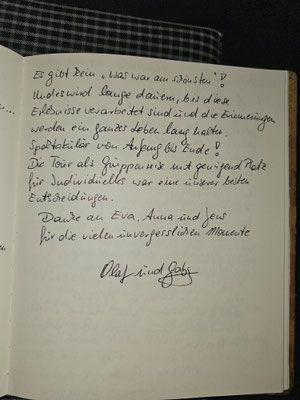 Es gibt kein „was war am schönsten"!
Und es wird lange dauern, bis diese
Erlebnisse verarbeitet sind und die Erinnerungen
werden ein ganzes Leben lang halten.
Spektakulär von Anfang bis Ende!
Die Tour als Gruppenreise mit genügend Platz
für Individuelles war eine unserer besten
Entscheidungen.
Danke an Eva, Anna und Jens
für die vielen unvergesslichen Momente
Olaf und Gaby